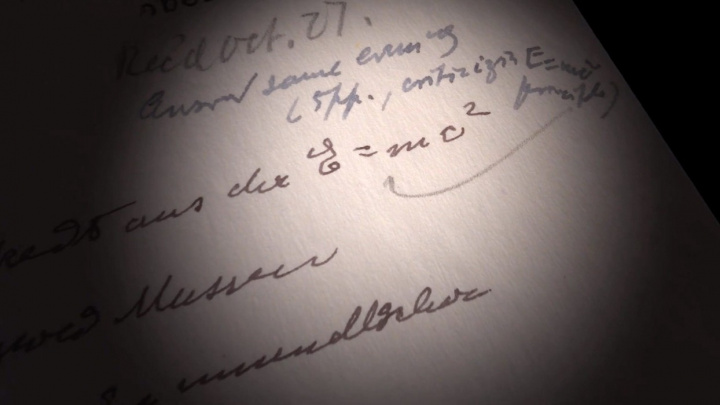 Rec'd Oct. 27.
Answ'd same evening
(5pp., criticizing E=mc²
principle)
aus der E=mc²
Massen
unendliche